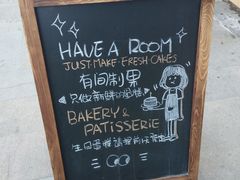 HAVE A ROOM
JUST·MAKE·FRESH·CAKES
有间制果
只做新鲜的蛋糕
BAKERY &
PATISSERIE
生日蛋糕请提前